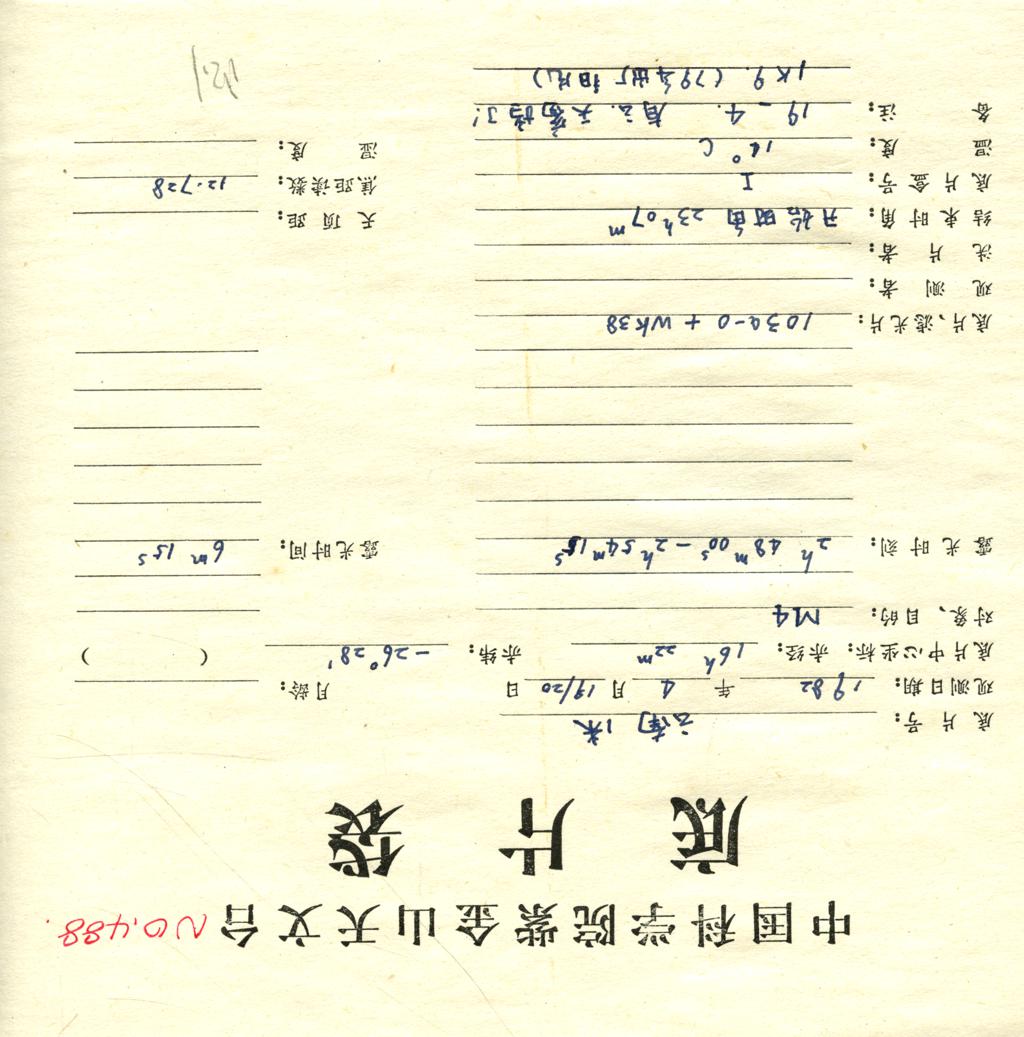 中国科学院紫金山天文台 NO.488.
底片袋
底片号： 云南1米
观测日期： 1982 年 4 月 19/20 日 月龄：
底片中心坐标： 赤经： 16h 22m 赤纬： -26°28′ ( )
对象、目的： M4
露光时刻： 2h 48m 00s - 2h 54m 15s 露光时间： 6m 15s
底片、滤光片： 103a-O + WK38
观测者：
洗片者：
结束时角： 开始时角 23h 07m 天顶距：
底片盒号： I 焦距读数： 12.728
温度： °C 湿度：
备注： 19-4. 有云. 天窗挡了!
1K9. (79年出厂旧片)